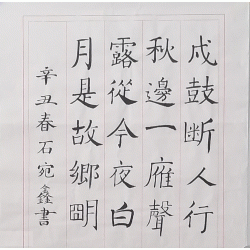 戍鼓断人行
秋邊一雁聲
露從今夜白
月是故鄉明
辛丑春石宛鑫書